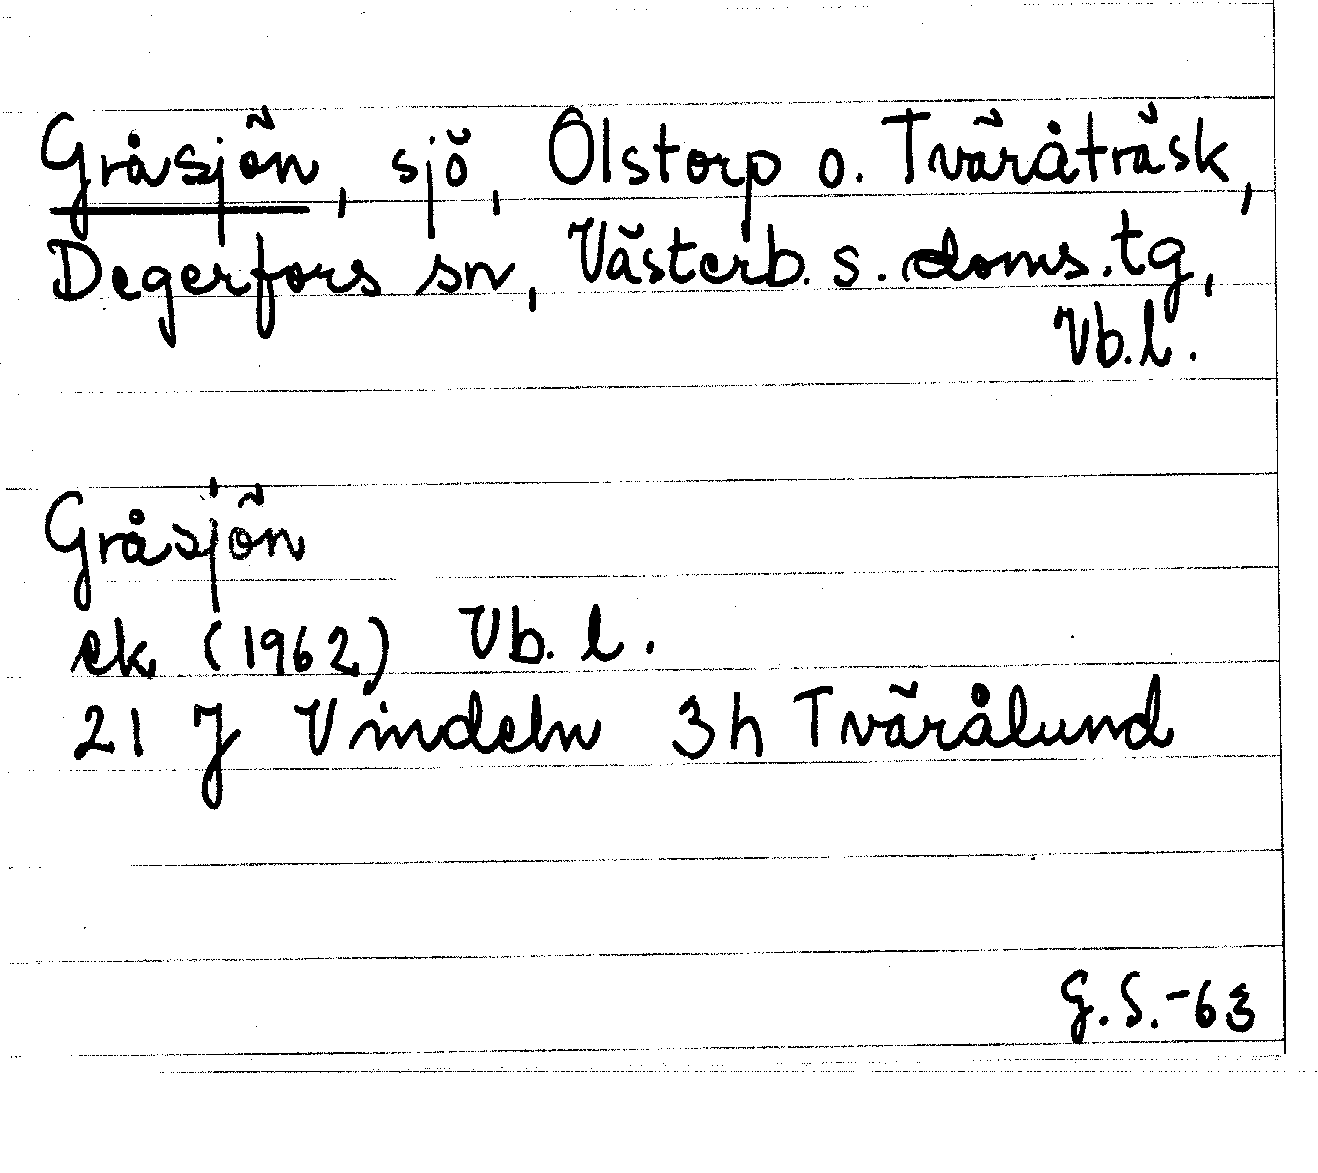 Gråsjön, sjö, Ölstorp o. Tväråträsk,
Degerfors sn, Västerb. s. doms. tg,
Vb. l.
Gråsjön
ek (1962) Vb. l.
21 J Vindeln 3h Tvärålund
G. S. -63